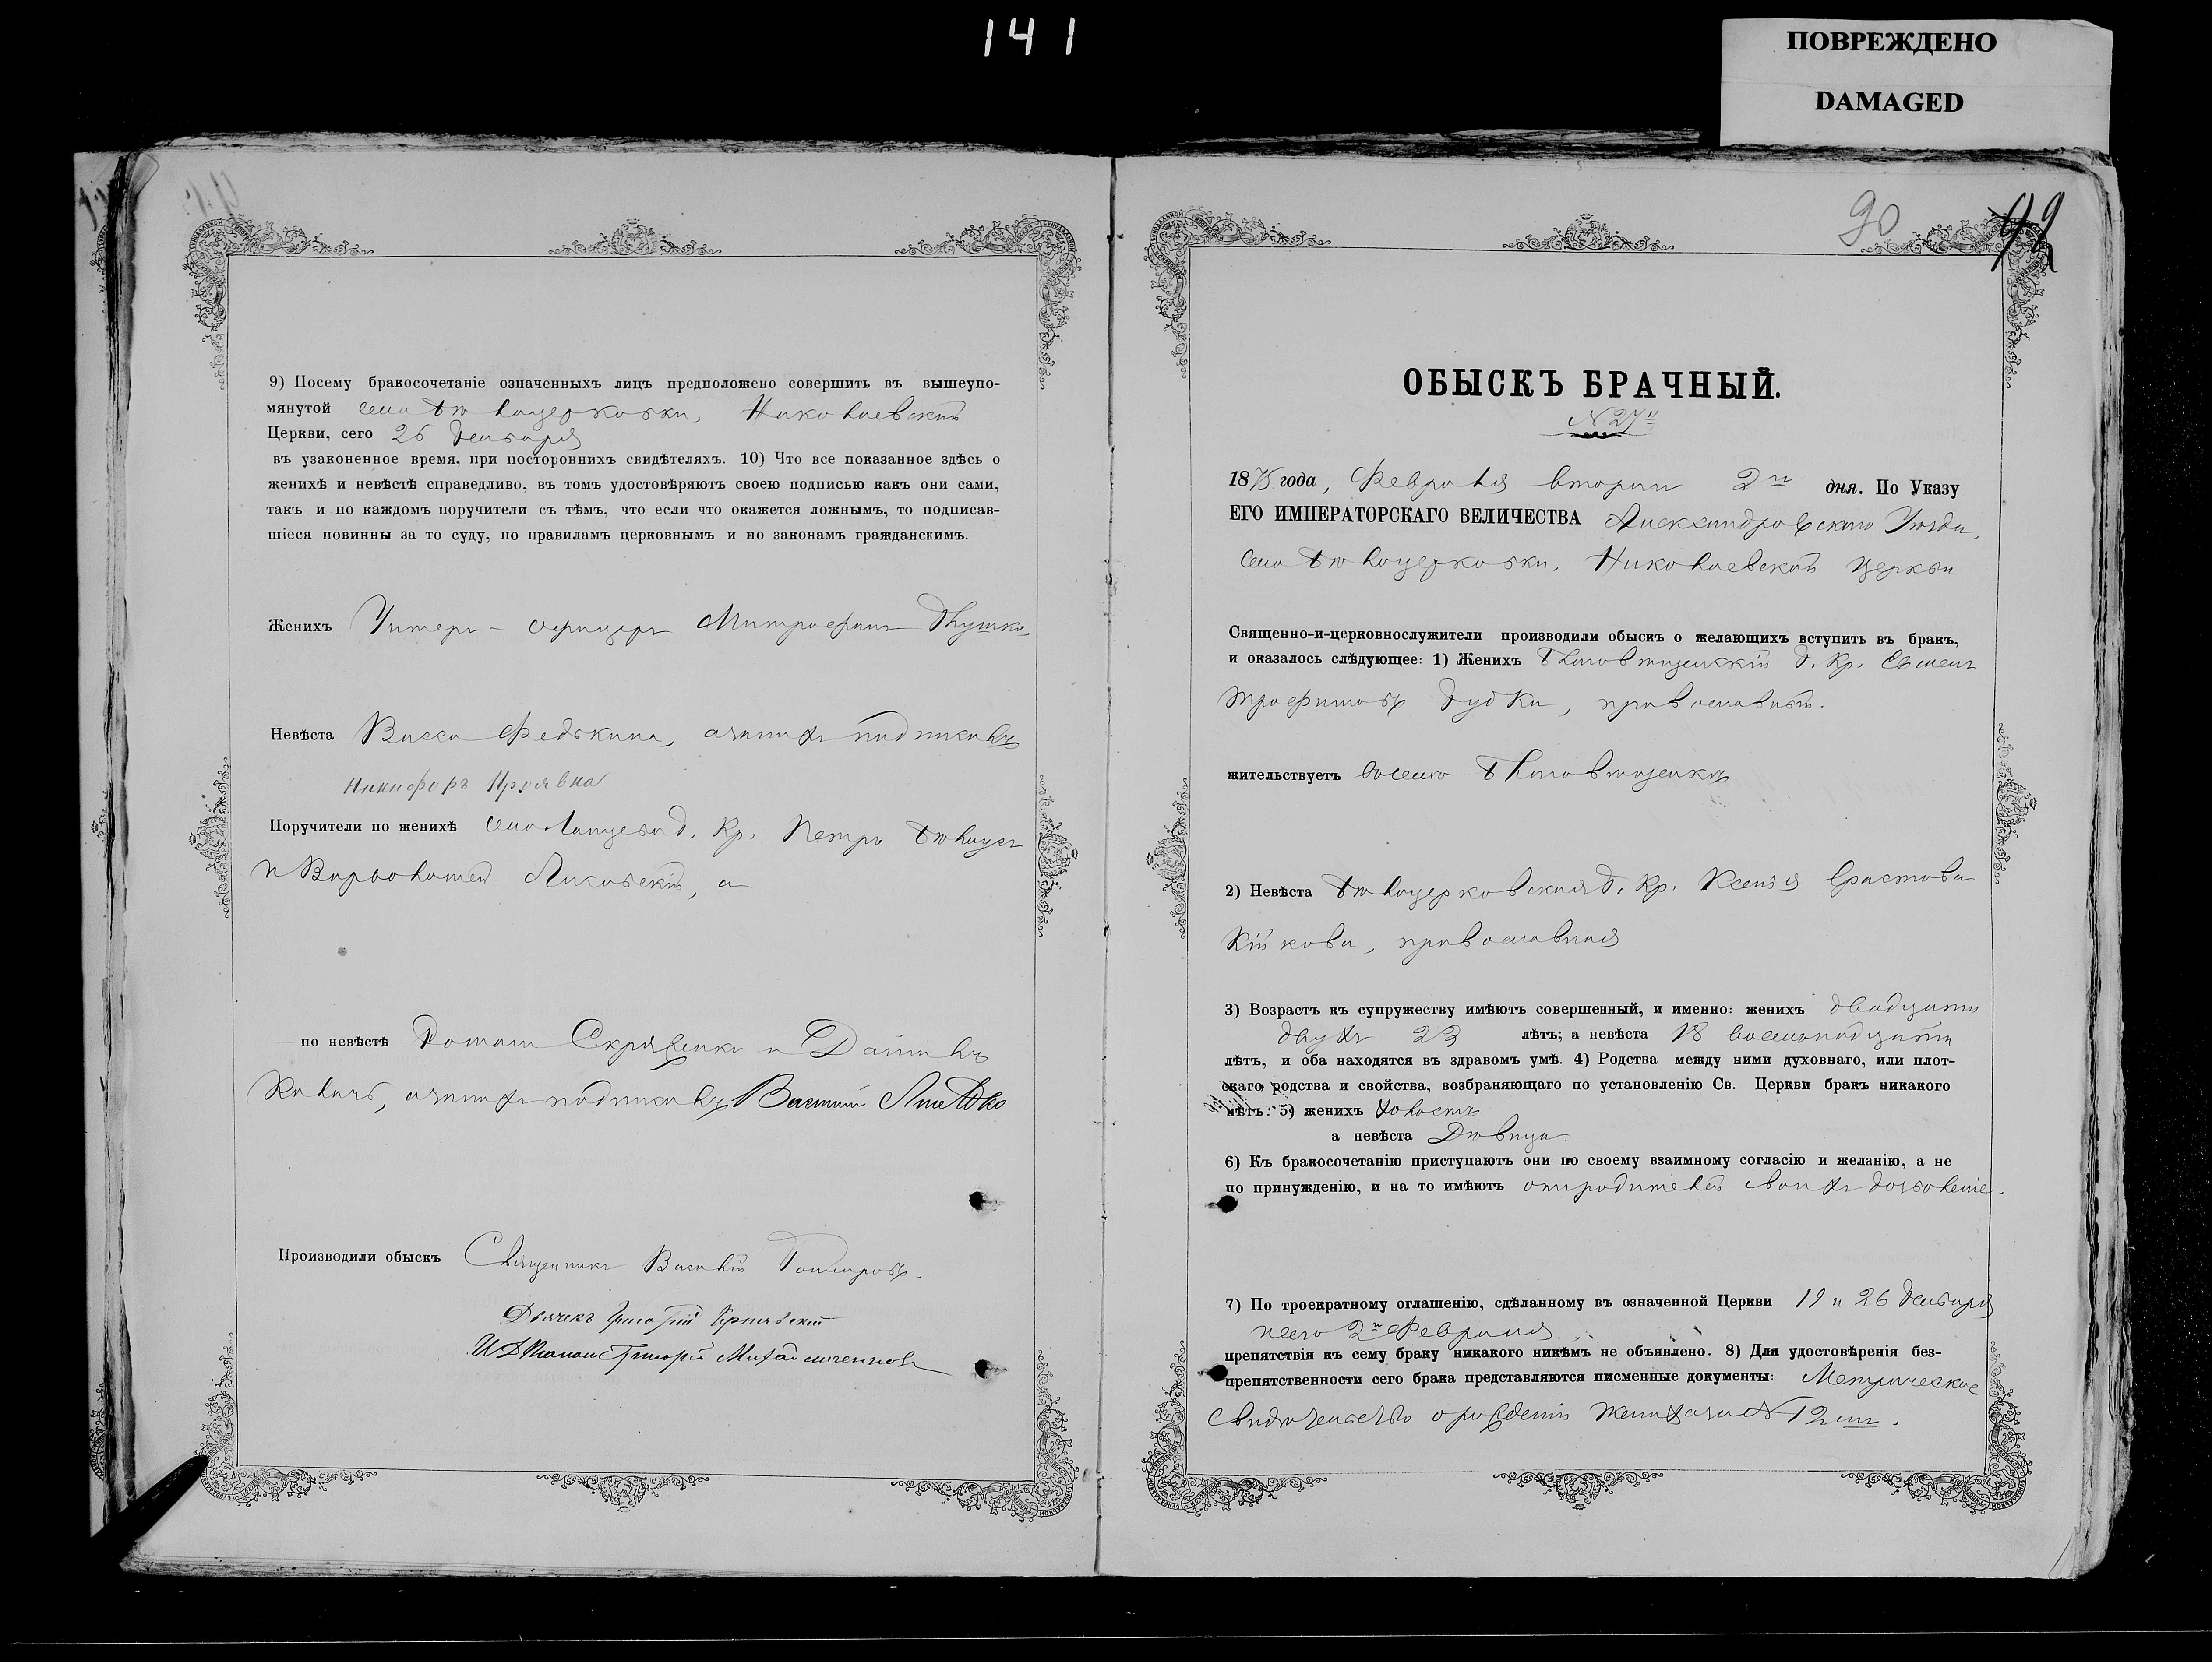 141
ПОВРЕЖДЕНО
DAMAGED
9) Посему бракосочетаніе означенныхъ лицъ предположено совершить въ вышеупо-
мянутой села Бѣлоцерковки, Николаевской
Церкви, сего 26 Генваря
въ узаконенное время, при постороннихъ свидѣтеляхъ. 10) Что все показанное здѣсь о
женихѣ и невѣстѣ справедливо, въ томъ удостовѣряютъ своею подписью какъ они сами,
такъ и по каждомъ поручители съ тѣмъ, что если что окажется ложнымъ, то подписав-
шіеся повинны за то суду, по правиламъ церковнымъ и по законамъ гражданскимъ.
Женихъ Унтеръ-офицеръ Митрофанъ
Невѣста Васса Федькина, а за нихъ подписалъ
Никифоръ
Поручители по женихѣ села г. кр. Петръ Бѣлаус
и Варфоломей а
по невѣстѣ Романъ и Даніилъ
Коваль, а за нихъ подписалъ Василій
Производили обыскъ Священникъ Василій
Дьячекъ Григорій
И. Д. Григорій
90
92
ОБЫСКЪ БРАЧНЫЙ.
№ 27й
1875 года, Февраля втораго 2го дня. По Указу
ЕГО ИМПЕРАТОРСКАГО ВЕЛИЧЕСТВА Александровскаго Уѣзда,
села Бѣлоцерковки, Николаевской церкви
Священно-и-церковнослужители производили обыскъ о желающихъ вступить въ бракъ,
и оказалось слѣдующее: 1) Женихъ г. кр. Семенъ
Трофимовъ Дудка, православный.
жительствуетъ въ селѣ
2) Невѣста Бѣлоцерковская г. кр. Ксенія Ерастова
Кійкова, православная
3) Возрастъ къ супружеству имѣютъ совершенный, и именно: женихъ двадцати
двухъ 23 лѣтъ; а невѣста 18 восемнадцати
лѣтъ, и оба находятся въ здравомъ умѣ. 4) Родства между ними духовнаго, или плот-
скаго родства и свойства, возбраняющаго по установленію Св. Церкви бракъ никакого
нѣтъ. 5) женихъ холостъ
а невѣста Дѣвица.
6) Къ бракосочетанію приступаютъ они по своему взаимному согласію и желанію, а не
по принужденію, и на то имѣютъ отъ родителей своихъ дозволеніе.
7) По троекратному оглашенію, сдѣланному въ означенной Церкви 19 и 26 Генваря
и сего 2го Февраля
препятствія къ сему браку никакого никѣмъ не объявлено. 8) Для удостовѣренія без-
препятственности сего брака представляются писменные документы: Метрическое
свидѣтельство о рожденіи жениха за № 12мъ.